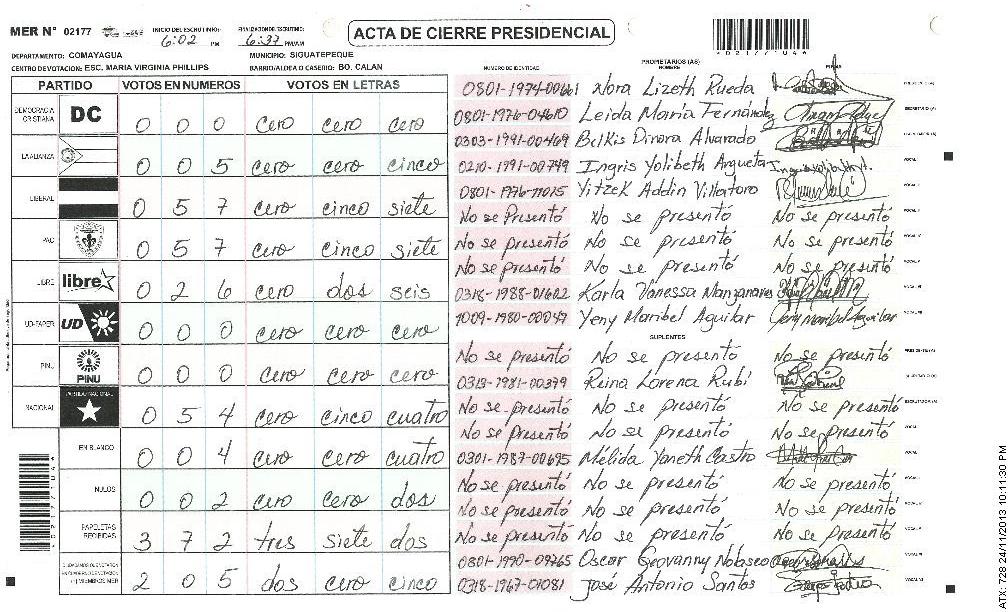 MER N° 02177
INICIO DEL ESCRUTINIO: 6:02 PM
FINALIZACION DE ESCRUTINIO: 6:37 PM/AM
ACTA DE CIERRE PRESIDENCIAL
021771044
DEPARTAMENTO: COMAYAGUA
MUNICIPIO: SIGUATEPEQUE
CENTRO DE VOTACION: ESC. MARIA VIRGINIA PHILLIPS
BARRIO/ALDEA O CASERIO: BO. CALAN
PARTIDO VOTOS EN NUMEROS VOTOS EN LETRAS
DEMOCRACIA CRISTIANA DC 0 0 0 cero cero cero
LA ALIANZA 0 0 5 cero cero cinco
LIBERAL 0 5 7 cero cinco siete
PAC 0 5 7 cero cinco siete
LIBRE libre 0 2 6 cero dos seis
UD-FAPER UD 0 0 0 cero cero cero
PINU PINU 0 0 0 cero cero cero
NACIONAL PARTIDO NACIONAL 0 5 4 cero cinco cuatro
EN BLANCO 0 0 4 cero cero cuatro
NULOS 0 0 2 cero cero dos
PAPELETAS RECIBIDAS 3 7 2 tres siete dos
2 0 5 dos cero cinco
NUMERO DE IDENTIDAD PROPIETARIOS (AS) NOMBRE FIRMA
0801-1974-00661 Nora Lizeth Rueda
0801-1976-04610 Leida María Fernández
0303-1991-00469 Belkis Dinora Alvarado
0210-1991-00749 Ingris Yolibeth Argueta
0801-1976-11015 Yitzek Addin Villatoro
No se Presentó No se presentó No se presentó
No se presentó No se presentó No se presentó
No se presentó No se presentó No se presentó
0318-1988-01602 Karla Vanessa Manzanares
1009-1980-00047 Yeny Maribel Aguilar Yeny Maribel Aguilar
SUPLENTES
No se presentó No se presentó No se presentó
0313-1981-00379 Reina Lorena Rubí
No se presentó No se presentó No se presentó
No se presentó No se presentó No se presentó
0301-1987-00695 Melida Yaneth Castro
No se presentó No se presentó No se presentó
No se presentó No se presentó No se presentó
No se presentó No se presentó No se presentó
0801-1990-09765 Oscar Geovanny Nolasco
0318-1967-01081 José Antonio Santos
ATX-728 24/11/2013 10:11:30 PM